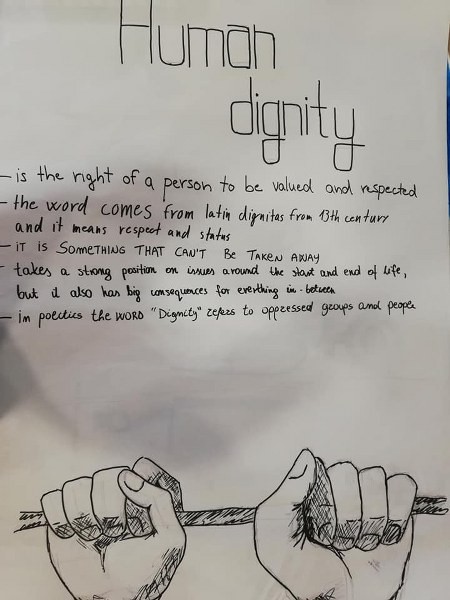 Human
dignity
- is the right of a person to be valued and respected
- the word comes from latin dignitas from 13th century
and it means respect and status
- IT IS SOMETHING THAT CAN'T BE TAKEN AWAY
- takes a strong position on issues around the start and end of life,
but it also has big consequences for everthing in-between
- in poeitics the WORD "Dignity" refers to oppressed groups and peope